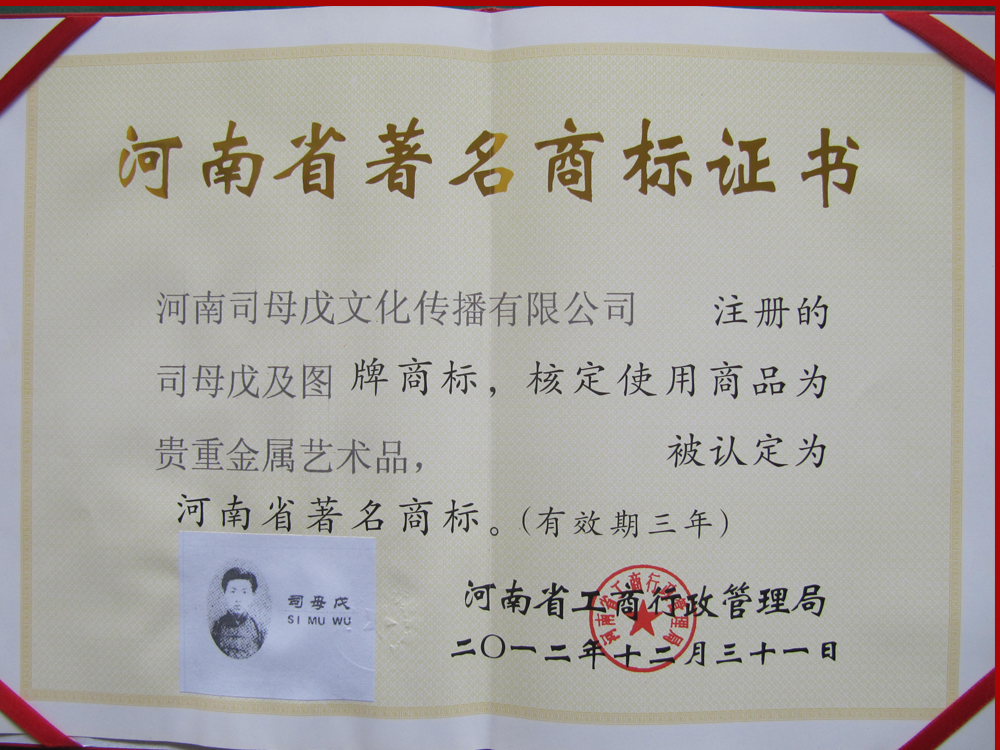 河南省著名商标证书
河南司母戊文化传播有限公司 注册的
司母戊及图 牌商标，核定使用商品为
贵重金属艺术品， 被认定为
河南省著名商标。（有效期三年）
司母戊
SI MU WU
河南省工商行政管理局
河南省工商行政管理局
二〇一二年十二月三十一日